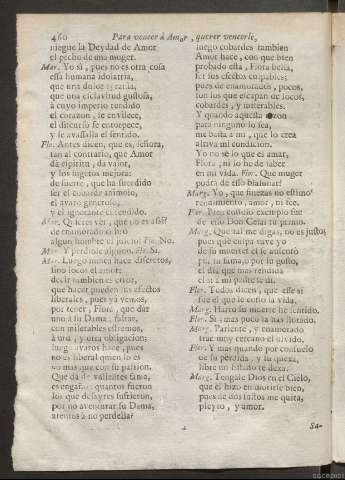 460 Para vencer à Amor, querer vencerle,
niegue la Deydad de Amor
el pecho de una muger.
Mar. Yo sì, pues no es otra cosa
essa humana idolatria,
que una dulce tyrania,
que una esclavitud gustosa,
à cuyo imperio rendido
el corazon, se envilece,
el discurso se entorpece,
y se avassalla el sentido.
Flo. Antes dicen, que es, señora,
tan al contrario, que Amor
dà espiritu, dà valor,
y los sugetos mejora:
de suerte, que ha sucedido
ser el cobarde animoso,
el avaro generoso,
y el ignorante entendido.
Mar. Quieres ver, que no es assi?
de enamorado se hizo
algun hombre el juicio? Flo. No.
Mar. Y perdiòle alguno? Flo. Si.
Mar. Luego nunca hace discretos,
sino locos el amor:
decir tambien es error,
que hacer pueden sus efectos
liberales, pues yà vemos,
por tener, Flora, que dàr
uno à su Dama, faltar,
con miserables estremos,
à una, y otra obligacion;
luego avaros hace, pues
no es liberal quien lo es
no mas que con su passion.
Que dà de valientes fama,
es engaño: quantos fueron
los que desayres sufrieron,
por no aventurar su Dama,
atentos à no perdella?
luego cobardes tambien
Amor hace, con que bien
probado està, Flora bella,
ser sus efectos culpables;
pues de enamorados, pocos
son los que escapan de locos,
cobardes, y miserables.
Y quando aquesta razon
para ninguno lo sea,
me basta à mi, que lo crea
altiva mi condicion.
Yo no sè lo que es amar,
Flora, ni lo he de saber
en mi vida. Flor. Que muger
podrà de esso blasonar?
Marg. Yo, que finezas no estimo
rendimiento, amor, ni fee.
Flor. Bien costoso exemplo fue
de esso Don Cesar tu primo.
Marg. Que tal me digas, no es justo,
pues què culpa tuve yo
de su muerte? el se ausentò
por su fama, o por su gusto,
el dia que mas rendida
el à mi padre le di.
Flor. Todos dicen, que esse si
fue el que le costò la vida.
Marg. Harto su muerte he sentido.
Flor. Si; mas poco la has llorado.
Marg. Pariente, y enamorado
trae muy cercano el olvido.
Flor. Y mas quando por consuelo
de su pérdida, y su quexa,
libre un Estado te dexa.
Marg. Tengale Dios en el Cielo,
que èl hizo en morirse bien,
pues de dos sustos me quita,
pleyto, y amor.
Sa-